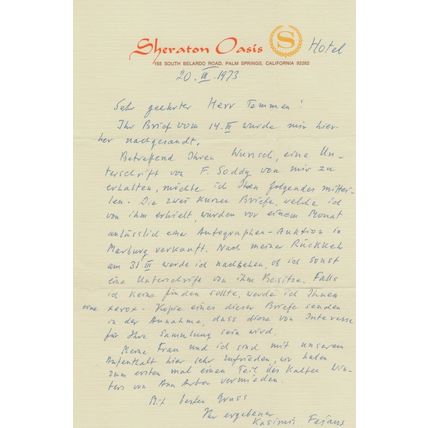 Sheraton Oasis S Hotel
155 SOUTH BELARDO ROAD, PALM SPRINGS, CALIFORNIA 92262
20. III 1973
Sehr geehrter Herr Temmen!
Ihr Brief vom 14. III wurde mir hier-
her nachgesandt.
Betreffend Ihren Wunsch, eine Un-
terschrift von F. Soddy von mir zu
erhalten, möchte ich Ihnen folgendes mittei-
len. Die zwei kurzen Briefe, welche ich
von ihm erhielt, wurden vor einem Monat
anlässlich einer Autographen-Auktion in
Marburg verkauft. Nach meiner Rückkeh
am 31 III werde ich nachsehen, ob ich sonst
eine Unterschrift von ihm besitze. Falls
ich keine finden sollte, werde ich Ihnen
eine xerox-Kopie eines dieser Briefe senden
in der Annahme, dass diese von Interesse
für Ihre Sammlung sein wird.
Meine Frau und ich sind mit unserem
Aufenthalt hier sehr zufrieden, wir haben
zum ersten mal einen Teil des kalten Win-
ters von Ann Arbor vermieden.
Mit besten Gruss
Ihr ergebener
Kasimir Fajans